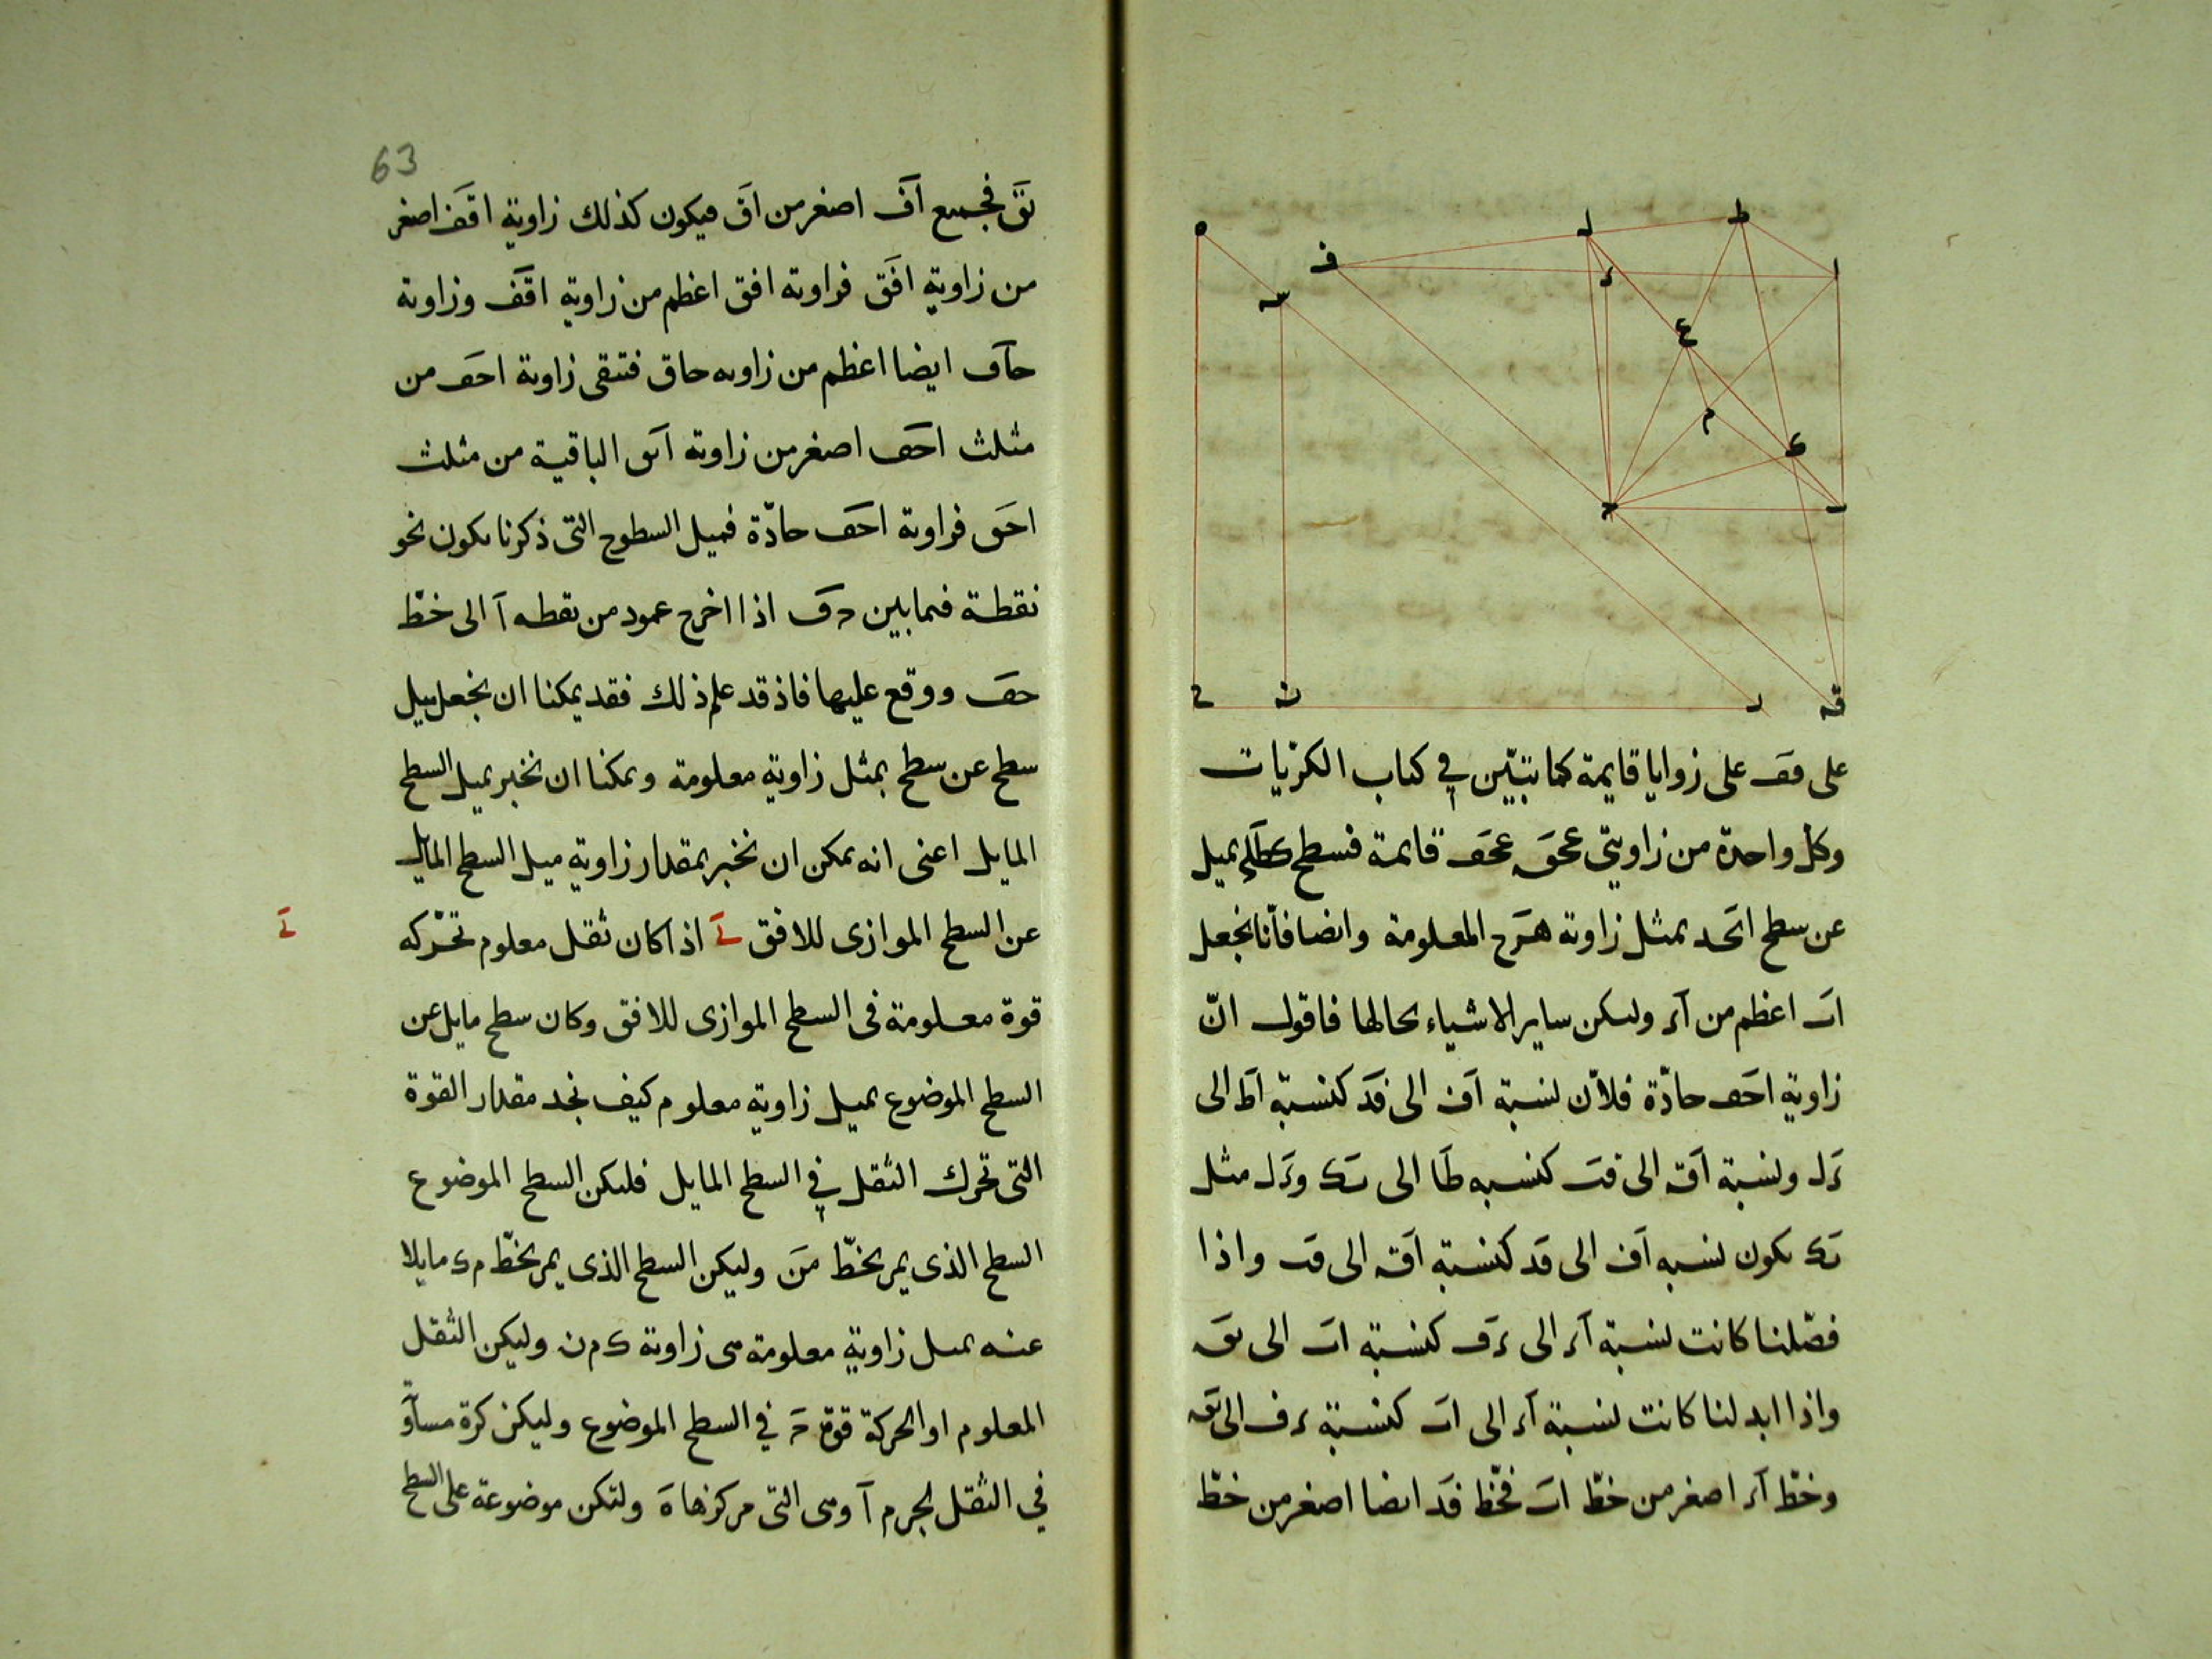 ه
ف
ل
ط
ا
د
سه
ع
م
ك
ح
ب
ح
ن
ر
قه
على فف على زوايا قايمة كما تبيّن في كتاب الكرّيات
وكل واحدة من زاويتي عحق عحف قايمة فسطح يميل
عن سطح احد بمثل زاوية هرح المعلومة وايضا فانّا نجعل
اب اعظم من اد وليكن ساير الاشياء بحالها فاقول انّ
زاوية احف حادّة فلانّ نسبة اف الى فد كنسبة اط الى
دل ونسبة اق الى قب كنسبه طا الى بك ودل مثل
بك يكون نسبه اف الى فد كنسبة اق الى قب واذا
فصّلنا كانت نسبة اد الى دف كنسبة اب الى بق
واذا ابدلنا كانت نسبة اد الى اب كنسبة دف الى بق
وخطّ اد اصغر من خطّ اب فخطّ فد ايضا اصغر من خطّ
63
بق فجميع اف اصغر من اق فيكون كذلك زاوية اقف اصغر
من زاوية افق فزاوية افق اعظم من زاوية اقف وزاوية
حاف ايضا اعظم من زاويه حاق فتبقى زاوية احف من
مثلث احف اصغر من زاوية الباقية من مثلث
احق فزاوية احف حادّة فميل السطوح التى ذكرنا يكون نحو
نقطة فيما بين ح ف اذا اخرج عمود من نقطه ا الى خطّ
حف ووقع عليها فاذ قد علم ذلك فقد يمكنا ان نجعل ميل
سطح عن سطح بمثل زاوية معلومة ويمكنا ان نخبر بميل السطح
المايل اعنى انه يمكن ان نخبر بمقدار زاوية ميل السطح المايل
عن السطح الموازى للافق ى اذا كان ثقل معلوم تحرّكه
ى
قوة معلومة فى السطح الموازى للافق وكان سطح مايل عن
السطح الموضوع بميل زاوية معلوم كيف نجد مقدار القوة
التى تحرك الثقل في السطح المايل فليكن السطح الموضوع
السطح الذى يمر بخطّ من وليكن السطح الذى يمر بخطّ م ك مايلا
عنه بميل زاوية معلومة هى زاوية ك م ن وليكن الثقل
المعلوم او الحركة قوة ح في السطح الموضوع وليكن كرة مساو
في الثقل لجرم ا وهى التى مركزها ه ولتكن موضوعة على السطح